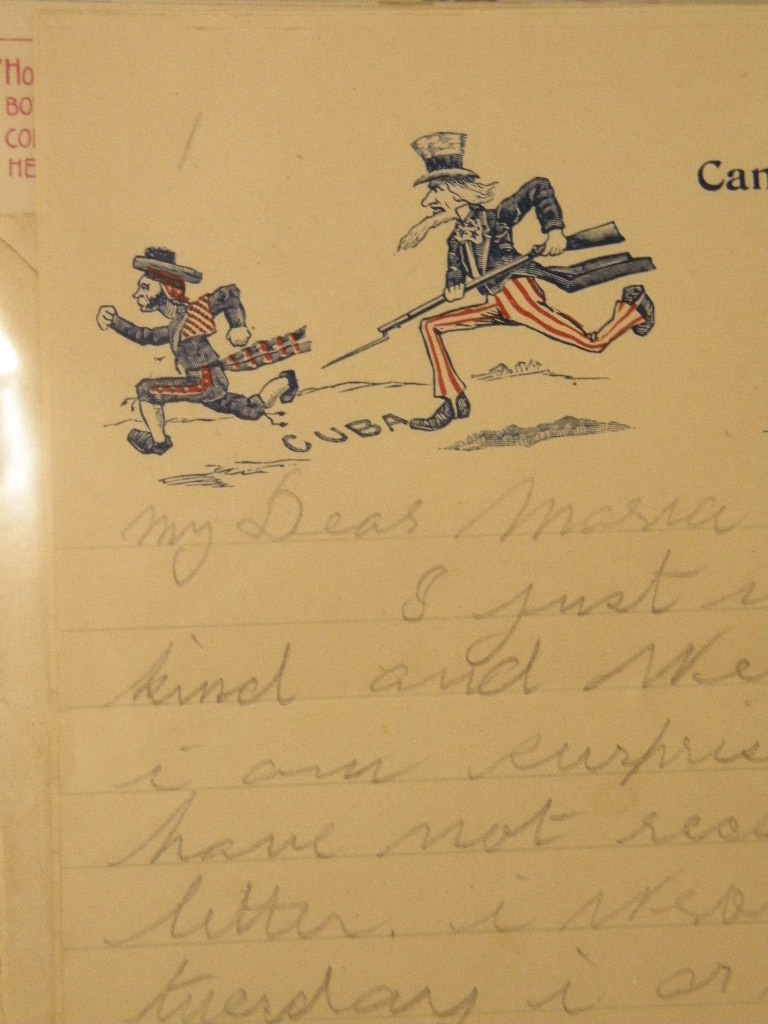 "HO
BO
CO
HE
Can
CUBA
my Dear Maria
I just
kind and
i am surpris
have not rece
letter. i
tuesday i